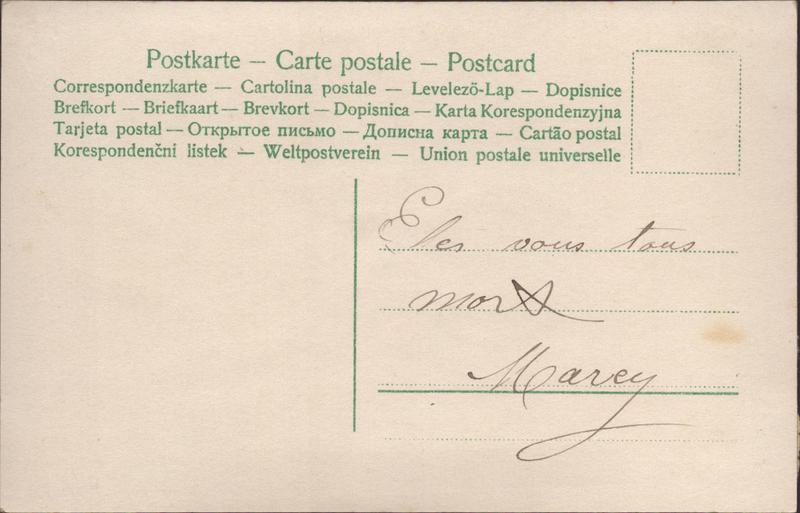 Postkarte – Carte postale – Postcard
Correspondenzkarte – Cartolina postale – Levelező-Lap – Dopisnice
Brefkort – Briefkaart – Brevkort – Dopisnica – Karta Korespondenzyjna
Tarjeta postal – Открытое письмо – Дописна карта – Cartão postal
Korespondenčni listek – Weltpostverein – Union postale universelle
Etes vous tous
morts
Marey